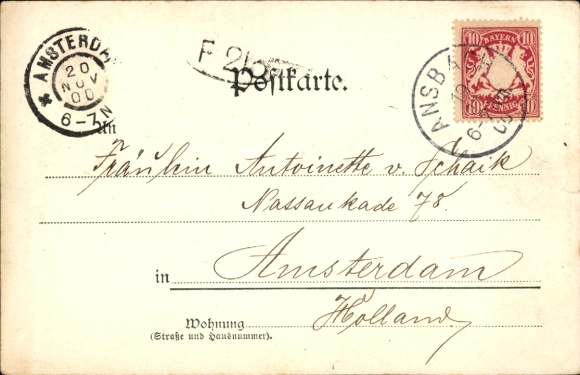 AMSTERDA
20
NOV
00
6-7N
F 215
Postkarte.
10 BAYERN 10
10 PFENNIG 10
ANSBA
An
Fräulein Antoinette v. Schaik
Nassaukade 78.
in Amsterdam
Holland
Wohnung
(Straße und Hausnummer).